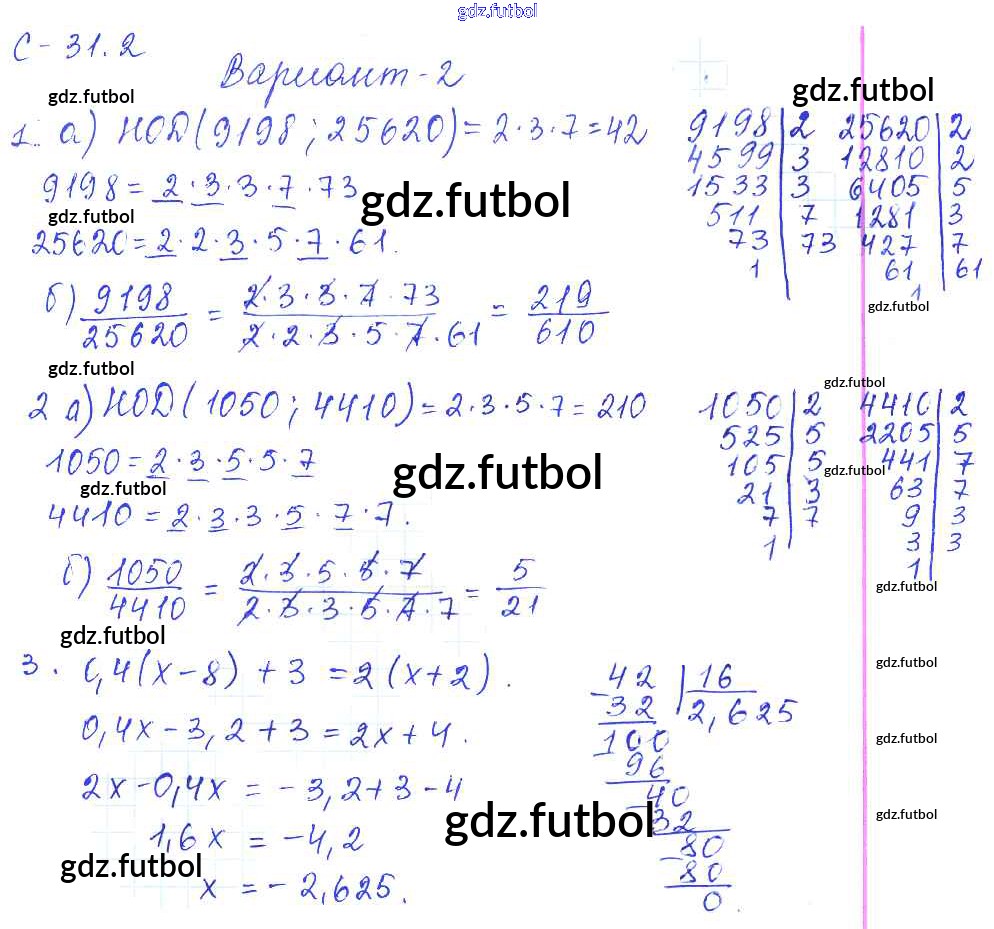 gdz.futbol
С-31.2
Вариант-2
gdz.futbol gdz.futbol
1. а) НОД(9198; 25620) = 2·3·7 = 42
9198 = 2·3·3·7·73
gdz.futbol
gdz.futbol
25620 = 2·2·3·5·7·61.
9198 | 2 25620 | 2
4599 | 3 12810 | 2
1533 | 3 6405 | 5
511 | 7 1281 | 3
73 | 73 427 | 7
1 | 61 | 61
1
gdz.futbol
б) 9198/25620 = 2·3·3·7·73/2·2·3·5·7·61 = 219/610
gdz.futbol
gdz.futbol
2 а) НОД(1050; 4410) = 2·3·5·7 = 210
1050 = 2·3·5·5·7
gdz.futbol
gdz.futbol
gdz.futbol
4410 = 2·3·3·5·7·7.
1050 | 2 4410 | 2
525 | 5 2205 | 5
105 | 5 441 | 7
21 | 3 63 | 7
7 | 7 9 | 3
1 | 3 | 3
1
gdz.futbol
б) 1050/4410 = 2·3·5·5·7/2·3·3·5·7·7 = 5/21
gdz.futbol
3. 0,4(х-8) + 3 = 2(х+2).
gdz.futbol
0,4х - 3,2 + 3 = 2х + 4.
gdz.futbol
2х - 0,4х = -3,2 + 3 - 4
gdz.futbol
gdz.futbol
1,6х = -4,2
gdz.futbol
х = -2,625.
42 | 16
-32 | 2,625
100
96
-40
32
-80
80
0